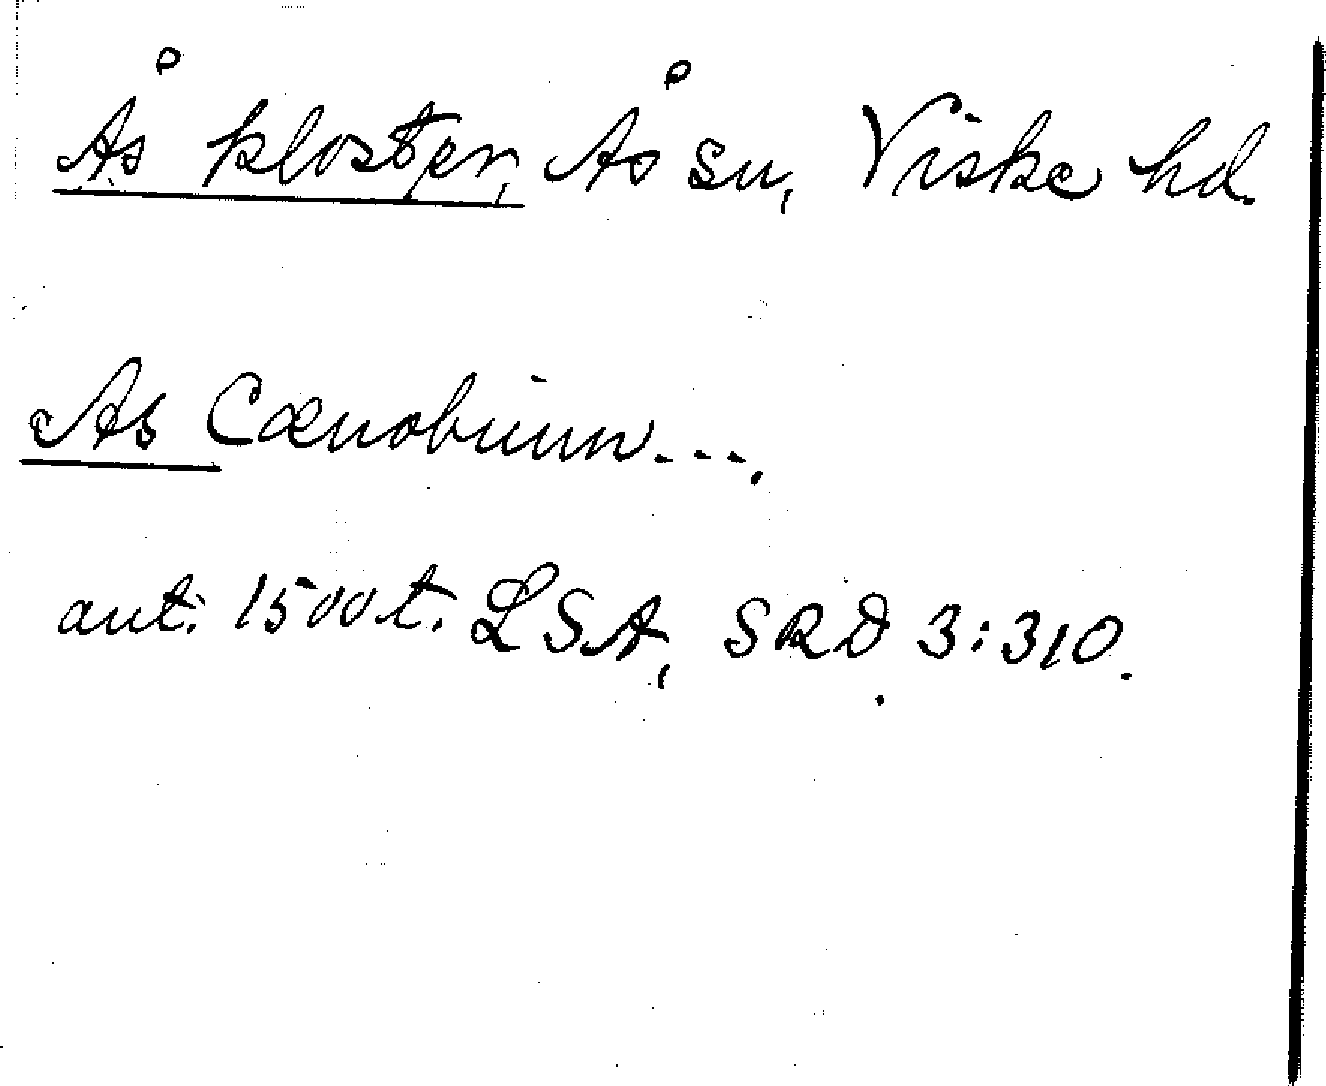 Ås kloster, Ås sn, Viske hd.
As Cœnobium....
ant. 1500 t. LSA, SRD 3:310.